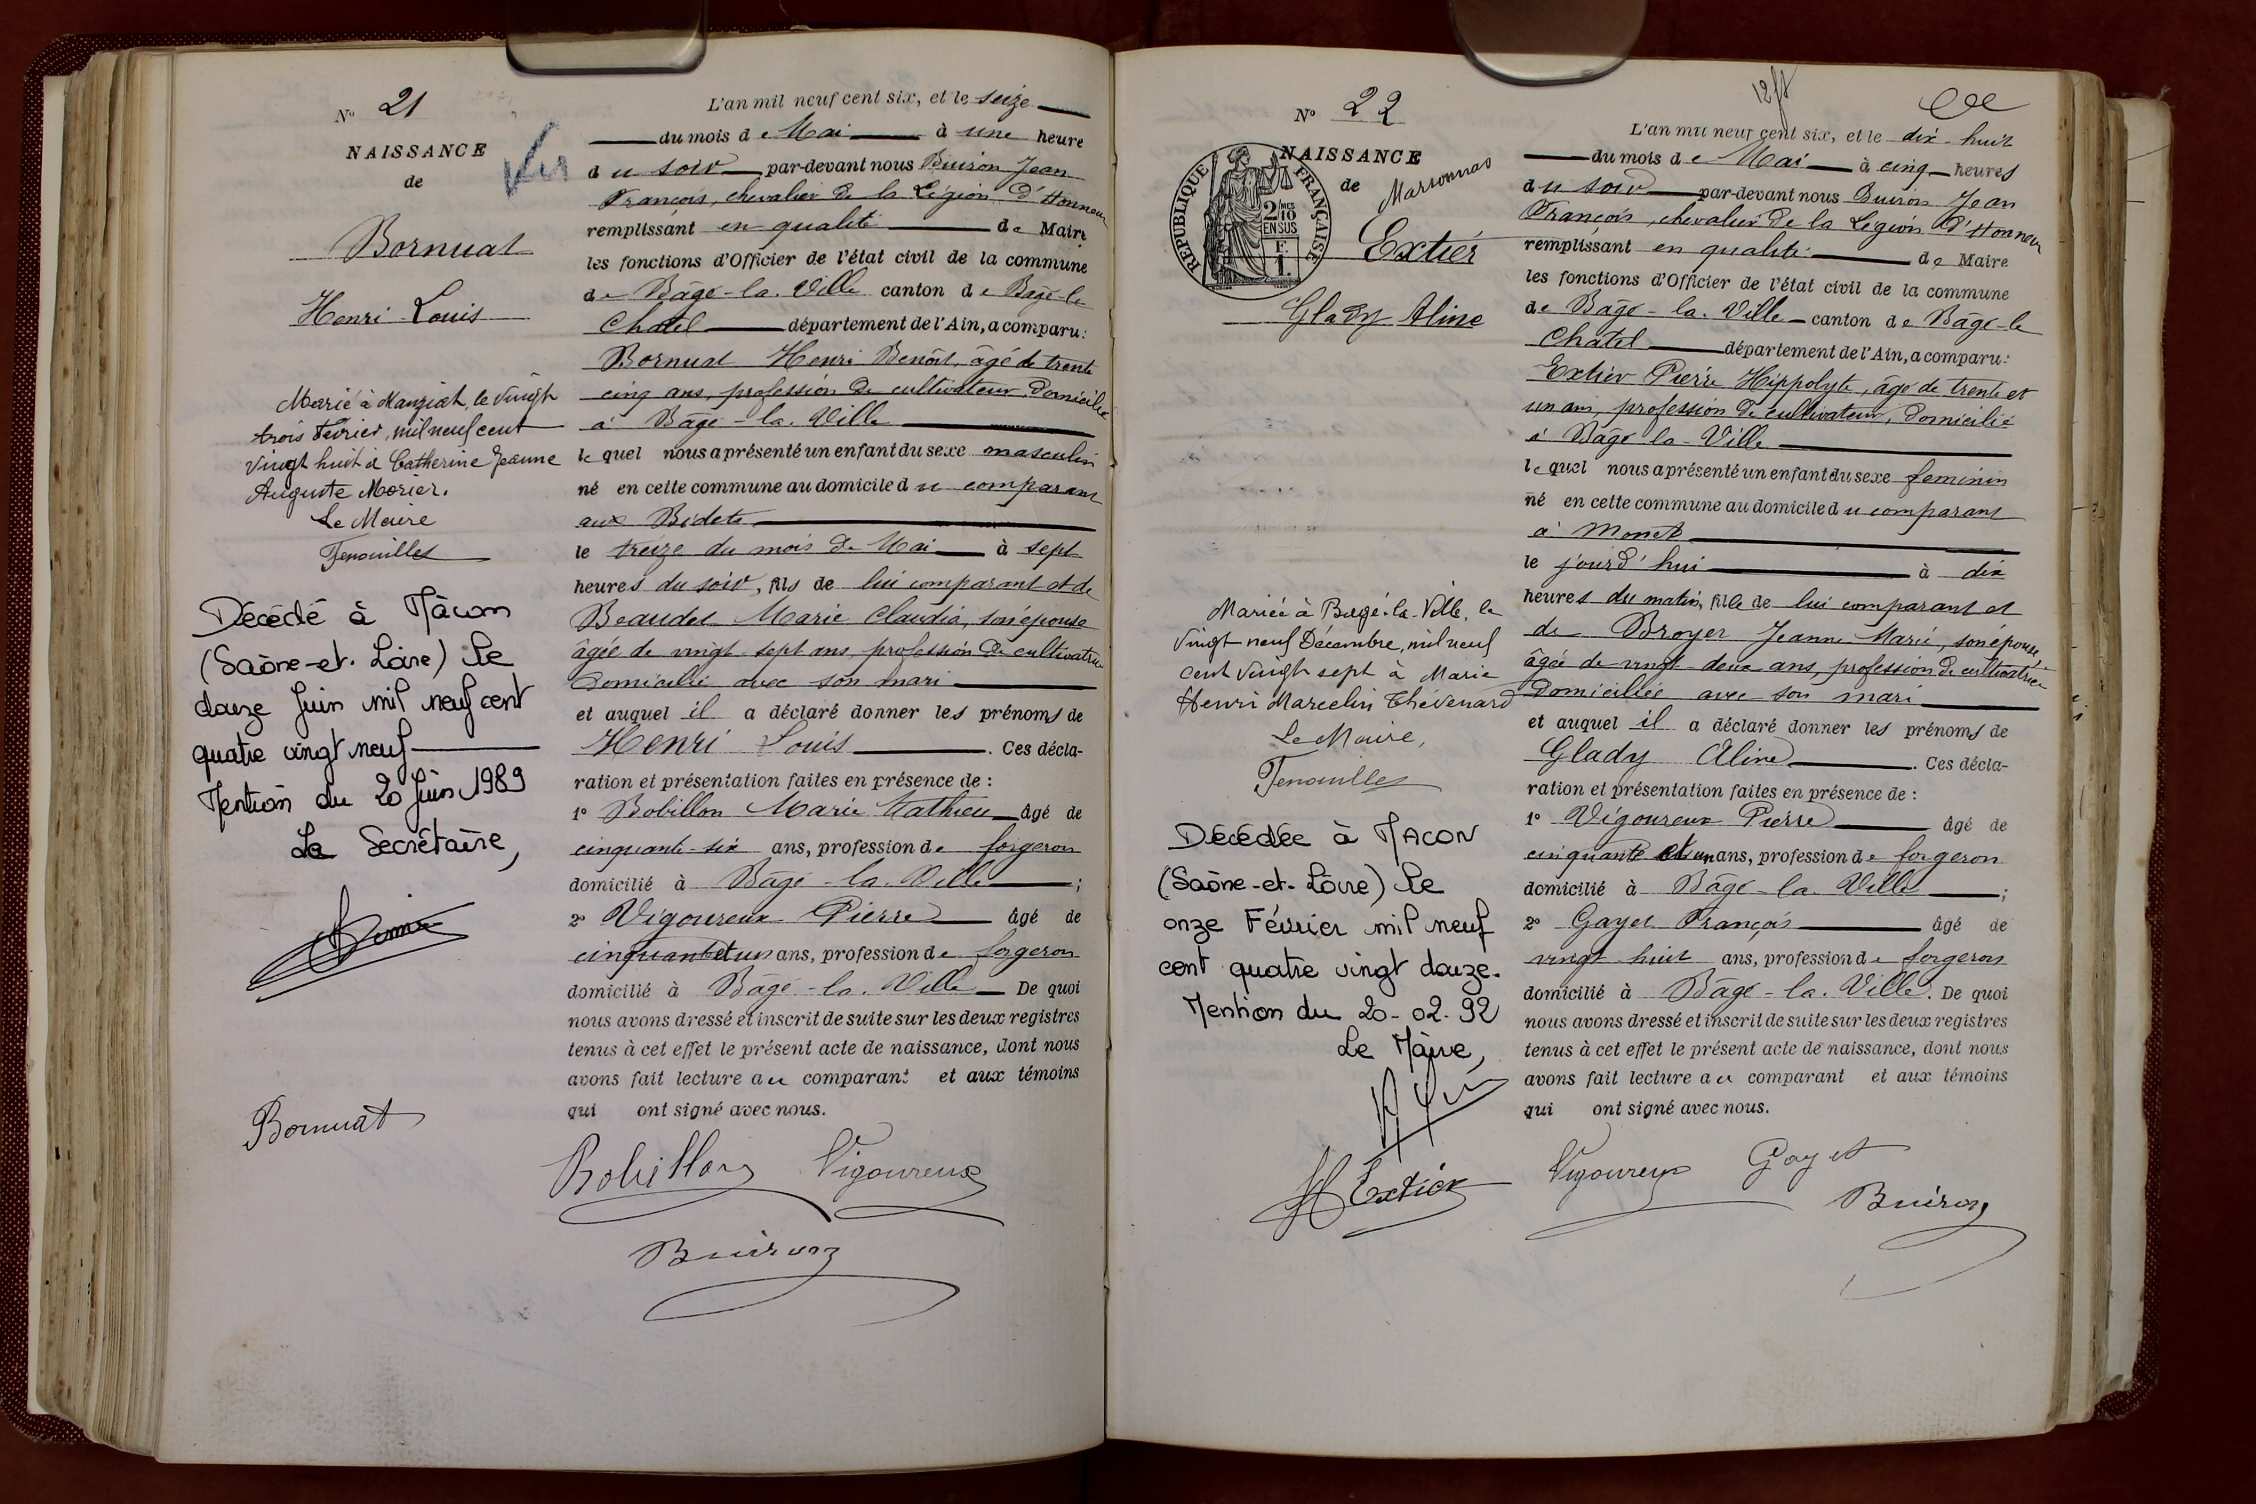 N° 21
NAISSANCE
de
Bornuat
Henri Louis
Marié à Manziat, le vingt
trois Février, mil neuf cent
vingt huit à Catherine Jeanne
Auguste Morier.
Le Maire
Fenouillet
Décédé à Mâcon
(Saône-et-Loire) le
douze Juin mil neuf cent
quatre vingt neuf
Mention du 20 Juin 1989
La Secrétaire,
Bornuat
L'an mil neuf cent six, et le seize
du mois de Mai à une heure
du soir par-devant nous Buiron Jean
François, chevalier de la Légion d'Honneur
remplissant en qualité de Maire
les fonctions d'Officier de l'état civil de la commune
de Bâgé-la-Ville canton de Bâgé-le
Chatel département de l'Ain, a comparu:
Bornuat Henri Benoît, âgé de trente
cinq ans, profession de cultivateur, domicilié
à Bâgé-la-Ville
lequel nous a présenté un enfant du sexe masculin
né en cette commune au domicile du comparant
aux Bidets
le treize du mois de Mai à sept
heures du soir, fils de lui comparant et de
Beaudet Marie Claudia, son épouse
âgée de vingt-sept ans, profession de cultivatrice
domiciliée avec son mari
et auquel il a déclaré donner les prénoms de
Henri Louis. Ces décla-
ration et présentation faites en présence de :
1° Bobillon Marie Mathieu âgé de
cinquante-six ans, profession de forgeron
domicilié à Bâgé-la-Ville ;
2° Vigoureux Pierre âgé de
cinquante et un ans, profession de forgeron
domicilié à Bâgé-la-Ville De quoi
nous avons dressé et inscrit de suite sur les deux registres
tenus à cet effet le présent acte de naissance, dont nous
avons fait lecture au comparant et aux témoins
qui ont signé avec nous.
Bobillon Vigoureux
Buiron
N° 22
NAISSANCE
de Marsonnas
REPUBLIQUE FRANÇAISE
2/10 MES
EN SUS
F.
1.
Extier
Glady Aline
Mariée à Bagé-la-Ville, le
vingt-neuf Décembre, mil neuf
cent vingt sept à Marie
Henri Marcelin Thévenard
Le Maire,
Fenouillet
Décédée à MACON
(Saône-et-Loire) le
onze Février mil neuf
cent quatre vingt douze.
Mention du 20-02-92
Le Maire,
H Extier
L'an mil neuf cent six, et le dix-huit
du mois de Mai à cinq heures
du soir par-devant nous Buiron Jean
François, chevalier de la Légion d'Honneur
remplissant en qualité de Maire
les fonctions d'Officier de l'état civil de la commune
de Bâgé-la-Ville canton de Bâgé-le
Chatel département de l'Ain, a comparu:
Extier Pierre Hippolyte, âgé de trente et
un ans, profession de cultivateur, domicilié
à Bâgé-la-Ville
lequel nous a présenté un enfant du sexe feminin
né en cette commune au domicile du comparant
à Monet
le jourd'hui à dix
heures du matin, fille de lui comparant et
de Broyer Jeanne Marie, son épouse,
âgée de vingt-deux ans, profession de cultivatrice
domiciliée avec son mari
et auquel il a déclaré donner les prénoms de
Glady Aline. Ces décla-
ration et présentation faites en présence de :
1° Vigoureux Pierre âgé de
cinquante et un ans, profession de forgeron
domicilié à Bâgé-la-Ville ;
2° Gayet François âgé de
vingt-huit ans, profession de forgeron
domicilié à Bâgé-la-Ville. De quoi
nous avons dressé et inscrit de suite sur les deux registres
tenus à cet effet le présent acte de naissance, dont nous
avons fait lecture au comparant et aux témoins
qui ont signé avec nous.
Vigoureux Gayet
Buiron